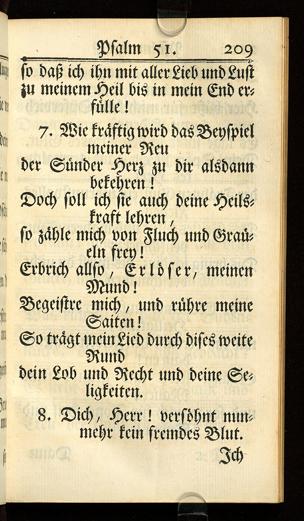 Psalm 51. 209
so daß ich ihn mit aller Lieb und Lust
zu meinem Heil bis in mein End er-
fülle!
7. Wie kräftig wird das Beyspiel
meiner Reu
der Sünder Herz zu dir alsdann
bekehren!
Doch soll ich sie auch deine Heils-
kraft lehren,
so zähle mich von Fluch und Gräü-
eln frey!
Erbrich allso, Erlöser, meinen
Mund!
Begeistre mich, und rühre meine
Saiten!
So trägt mein Lied durch dises weite
Rund
dein Lob und Recht und deine Se-
ligkeiten.
8. Dich, Herr! versöhnt nun-
mehr kein fremdes Blut.
Ich